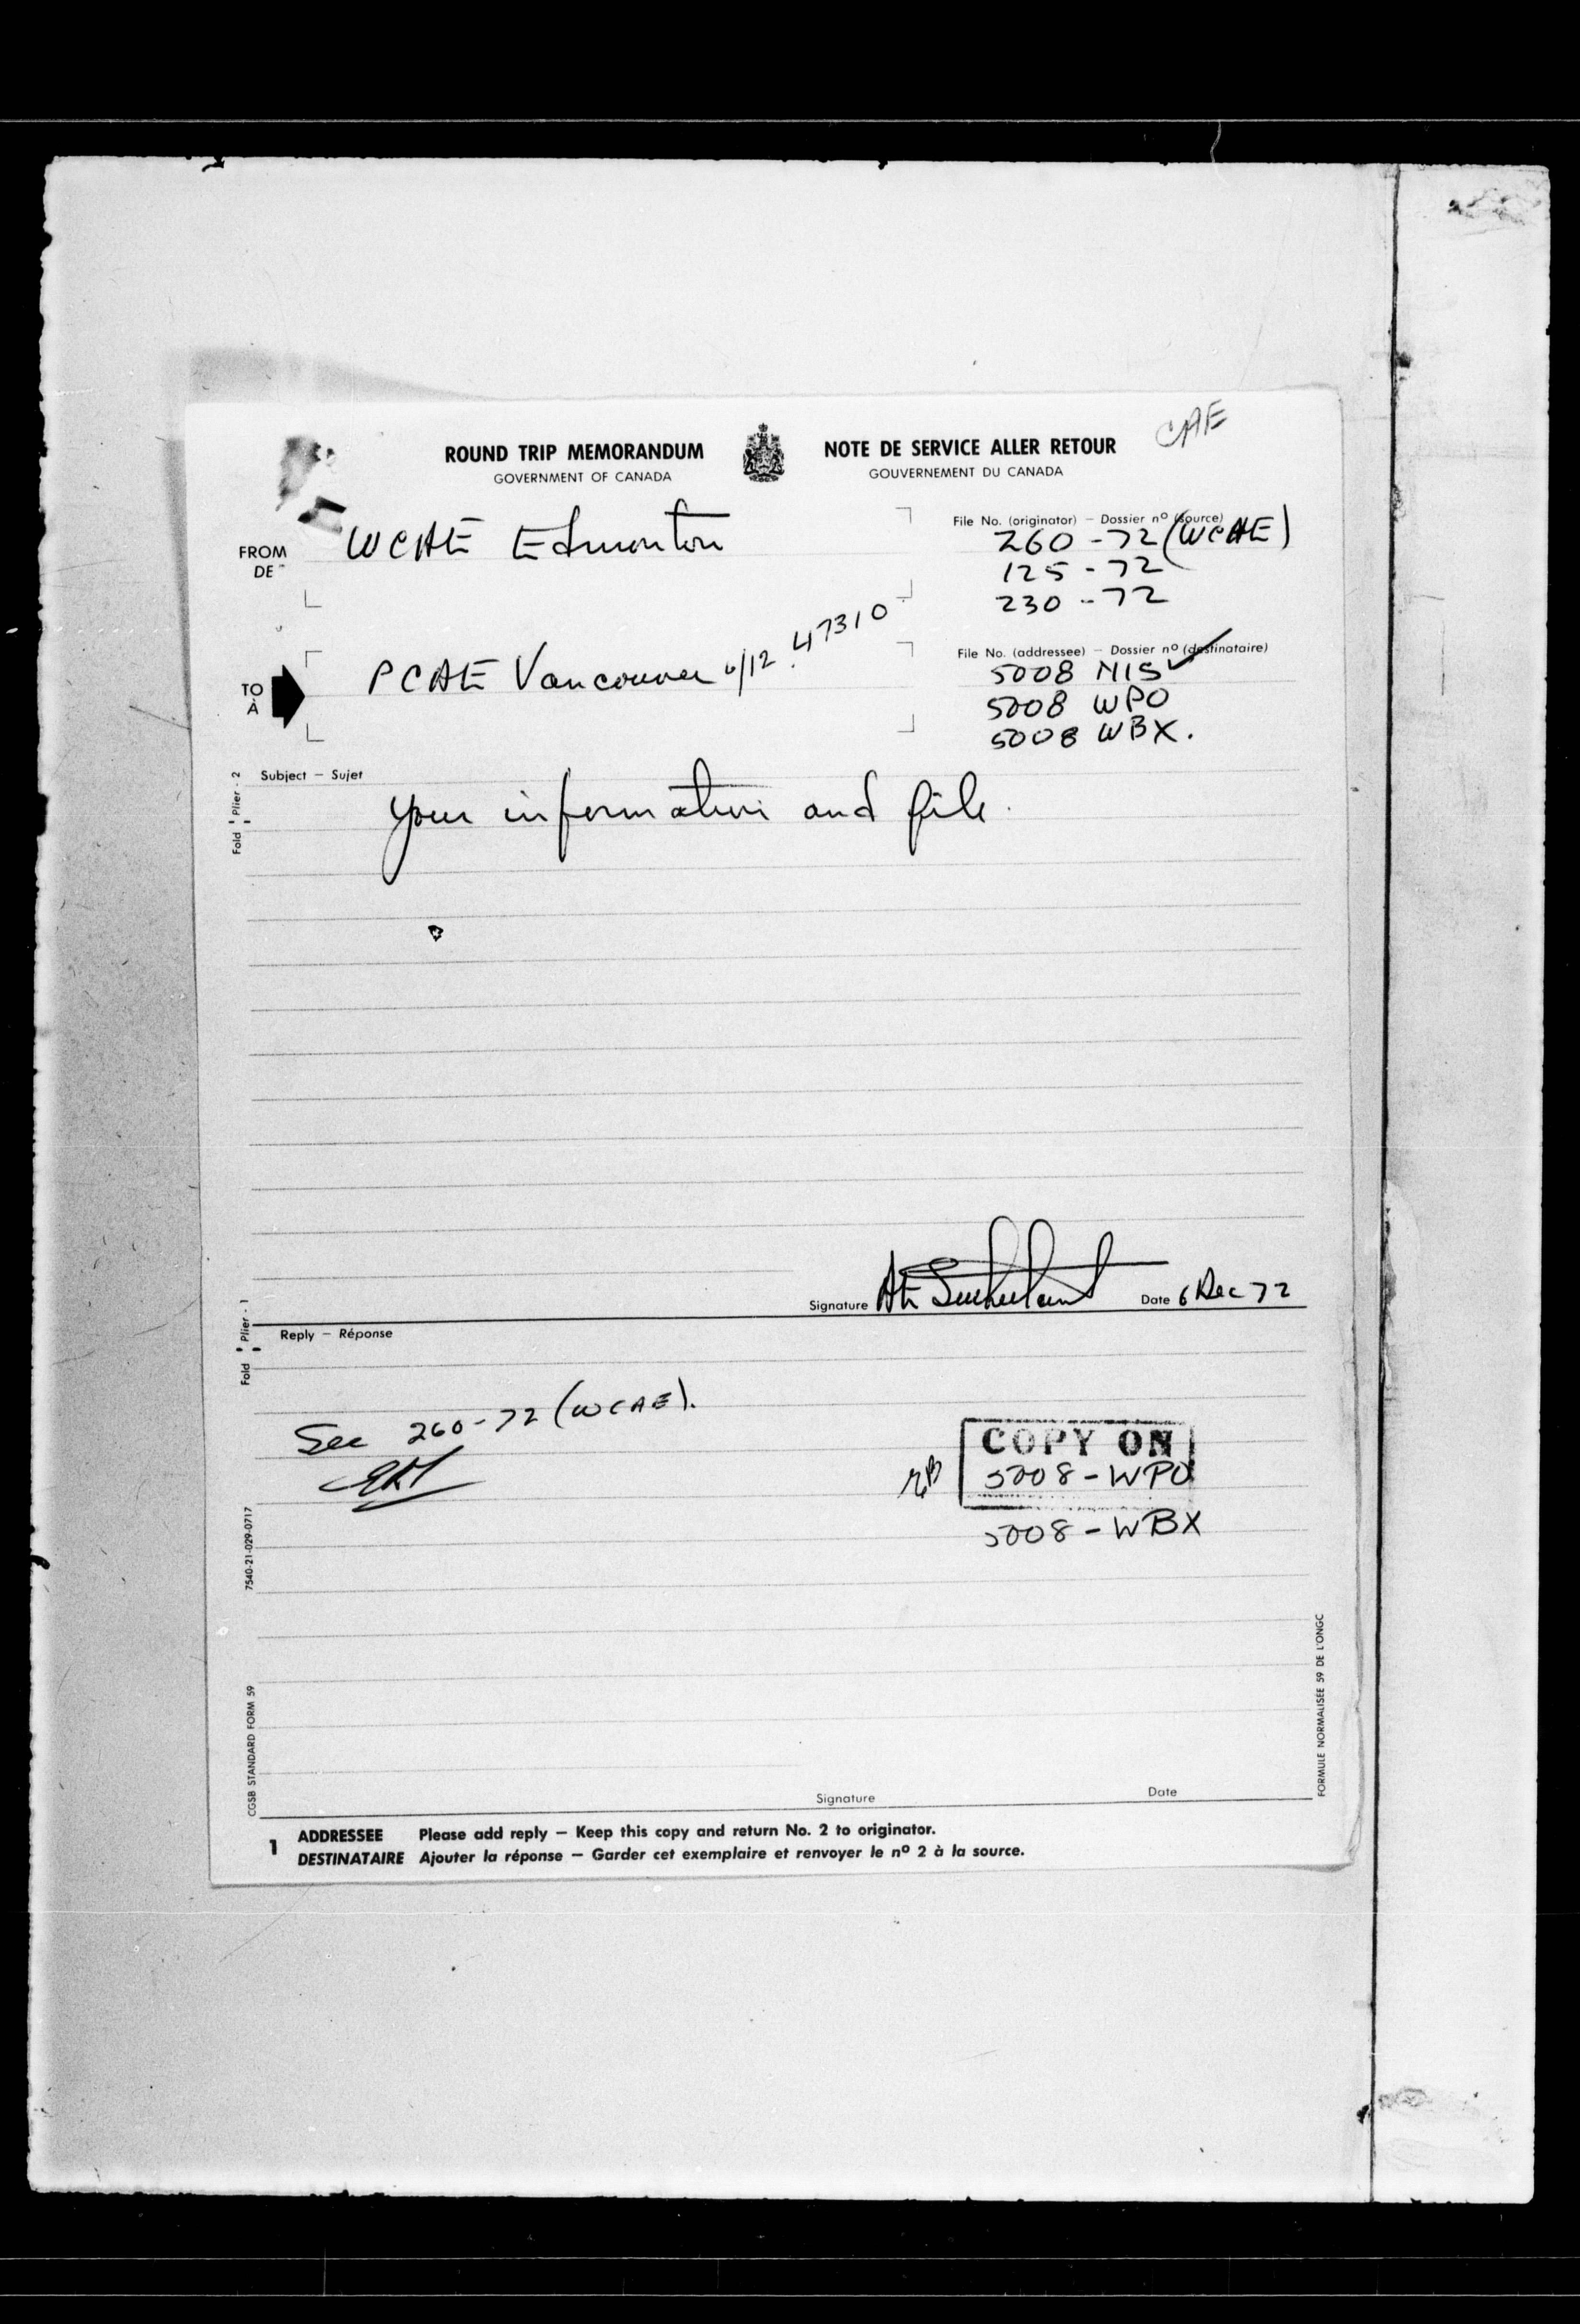 CAE
ROUND TRIP MEMORANDUM
GOVERNMENT OF CANADA
NOTE DE SERVICE ALLER RETOUR
GOUVERNEMENT DU CANADA
FROM
DE
WCAE Edmonton
File No. (originator) – Dossier nº (source)
260-72 (WCAE)
125-72
230-72
TO
À
PCAE Vancouver 6/12 47310
File No. (addressee) – Dossier nº (destinataire)
5008 NIS
5008 WPO
5008 WBX.
Fold Plier - 2
Subject – Sujet
your information and file.
Signature
Sutherland
Date 6 Dec 72
Fold Plier - 1
Reply – Réponse
See 260-72 (WCAE).
COPY ON
5008-WPO
5008-WBX
7540-21-029-0717
CGSB STANDARD FORM 59
FORMULE NORMALISEE 59 DE L'ONGC
Signature
Date
1 ADDRESSEE Please add reply – Keep this copy and return No. 2 to originator.
DESTINATAIRE Ajouter la réponse – Garder cet exemplaire et renvoyer le nº 2 à la source.